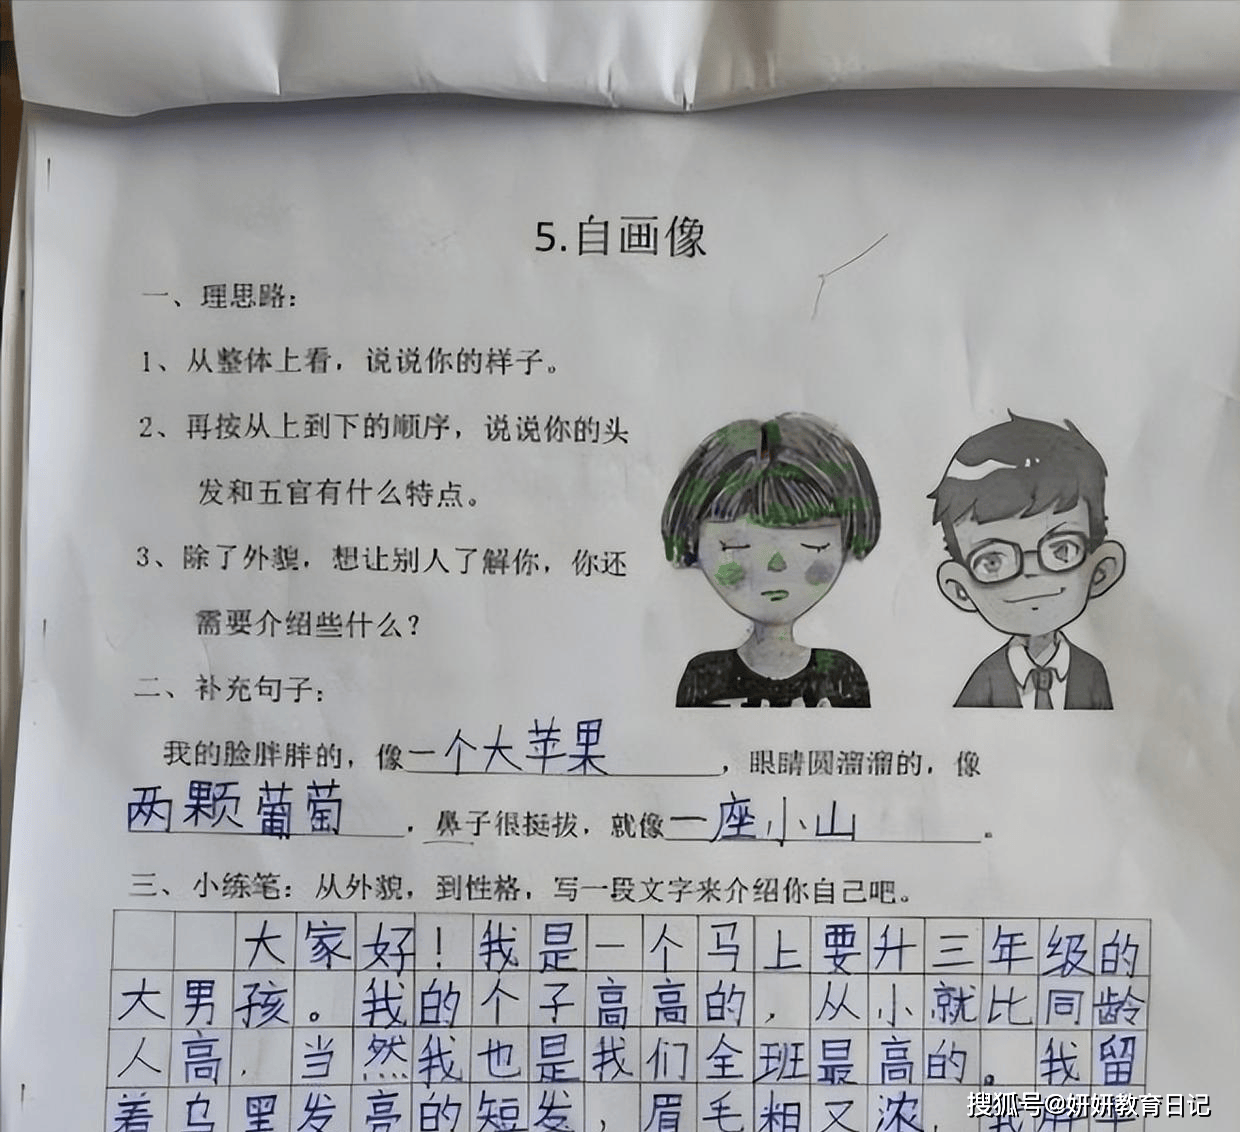 5.自画像
一、理思路：
1、从整体上看，说说你的样子。
2、再按从上到下的顺序，说说你的头
发和五官有什么特点。
3、除了外貌，想让别人了解你，你还
需要介绍些什么？
二、补充句子：
我的脸胖胖的，像一个大苹果，眼睛圆溜溜的，像
两颗葡萄，鼻子很挺拔，就像一座小山。
三、小练笔：从外貌，到性格，写一段文字来介绍你自己吧。
大家好！我是一个马上要升三年级的
大男孩。我的个子高高的，从小就比同龄
人高，当然我也是我们全班最高的。我留
着乌黑发亮的短发，眉毛粗又浓，
搜狐号@妍妍教育日记